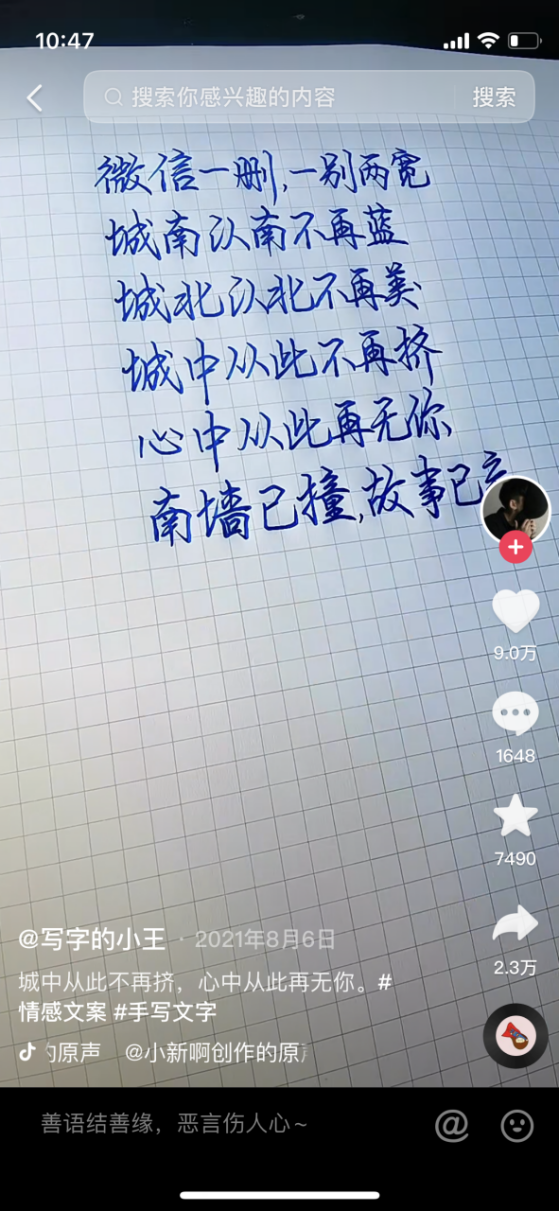 10:47
搜索你感兴趣的内容 搜索
微信一删,一别两宽
城南以南不再蓝
城北以北不再美
城中从此不再挤
心中从此再无你
南墙已撞,故事已
9.0万
1648
7490
2.3万
@写字的小王 · 2021年8月6日
城中从此不再挤，心中从此再无你。#
情感文案 #手写文字
的原声 @小新啊创作的原
善语结善缘，恶言伤人心~